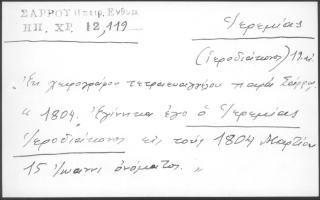 ΣΑΡΡΟΥ Ἠπειρ. Ἐνθυμ.
ΗΠ. ΧΡ. 12,119
Ἱερεμίας
(ἱεροδιάκονος) 19 αἰ.
„ Ἐκ χειρογράφου τετραευαγγέλου παρὰ Σάρρου
“ 1804. Ἐγίνηκα ἐγο ὁ Ἱερεμίας
Ἱεροδιάκονος εἰς τοὺς 1804 Μαρτίου
15 Ἰωαννι ὀνόματος. „